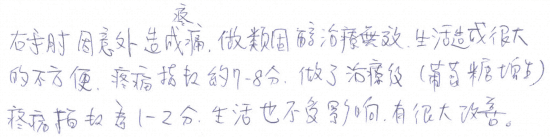 右手肘因意外造成疼痛,做類固醇治療無效.生活造成很大
的不方便.疼痛指數約7-8分.做了治療後(葡萄糖增生)
疼痛指數為1-2分.生活也不受影響向.有很大改善。